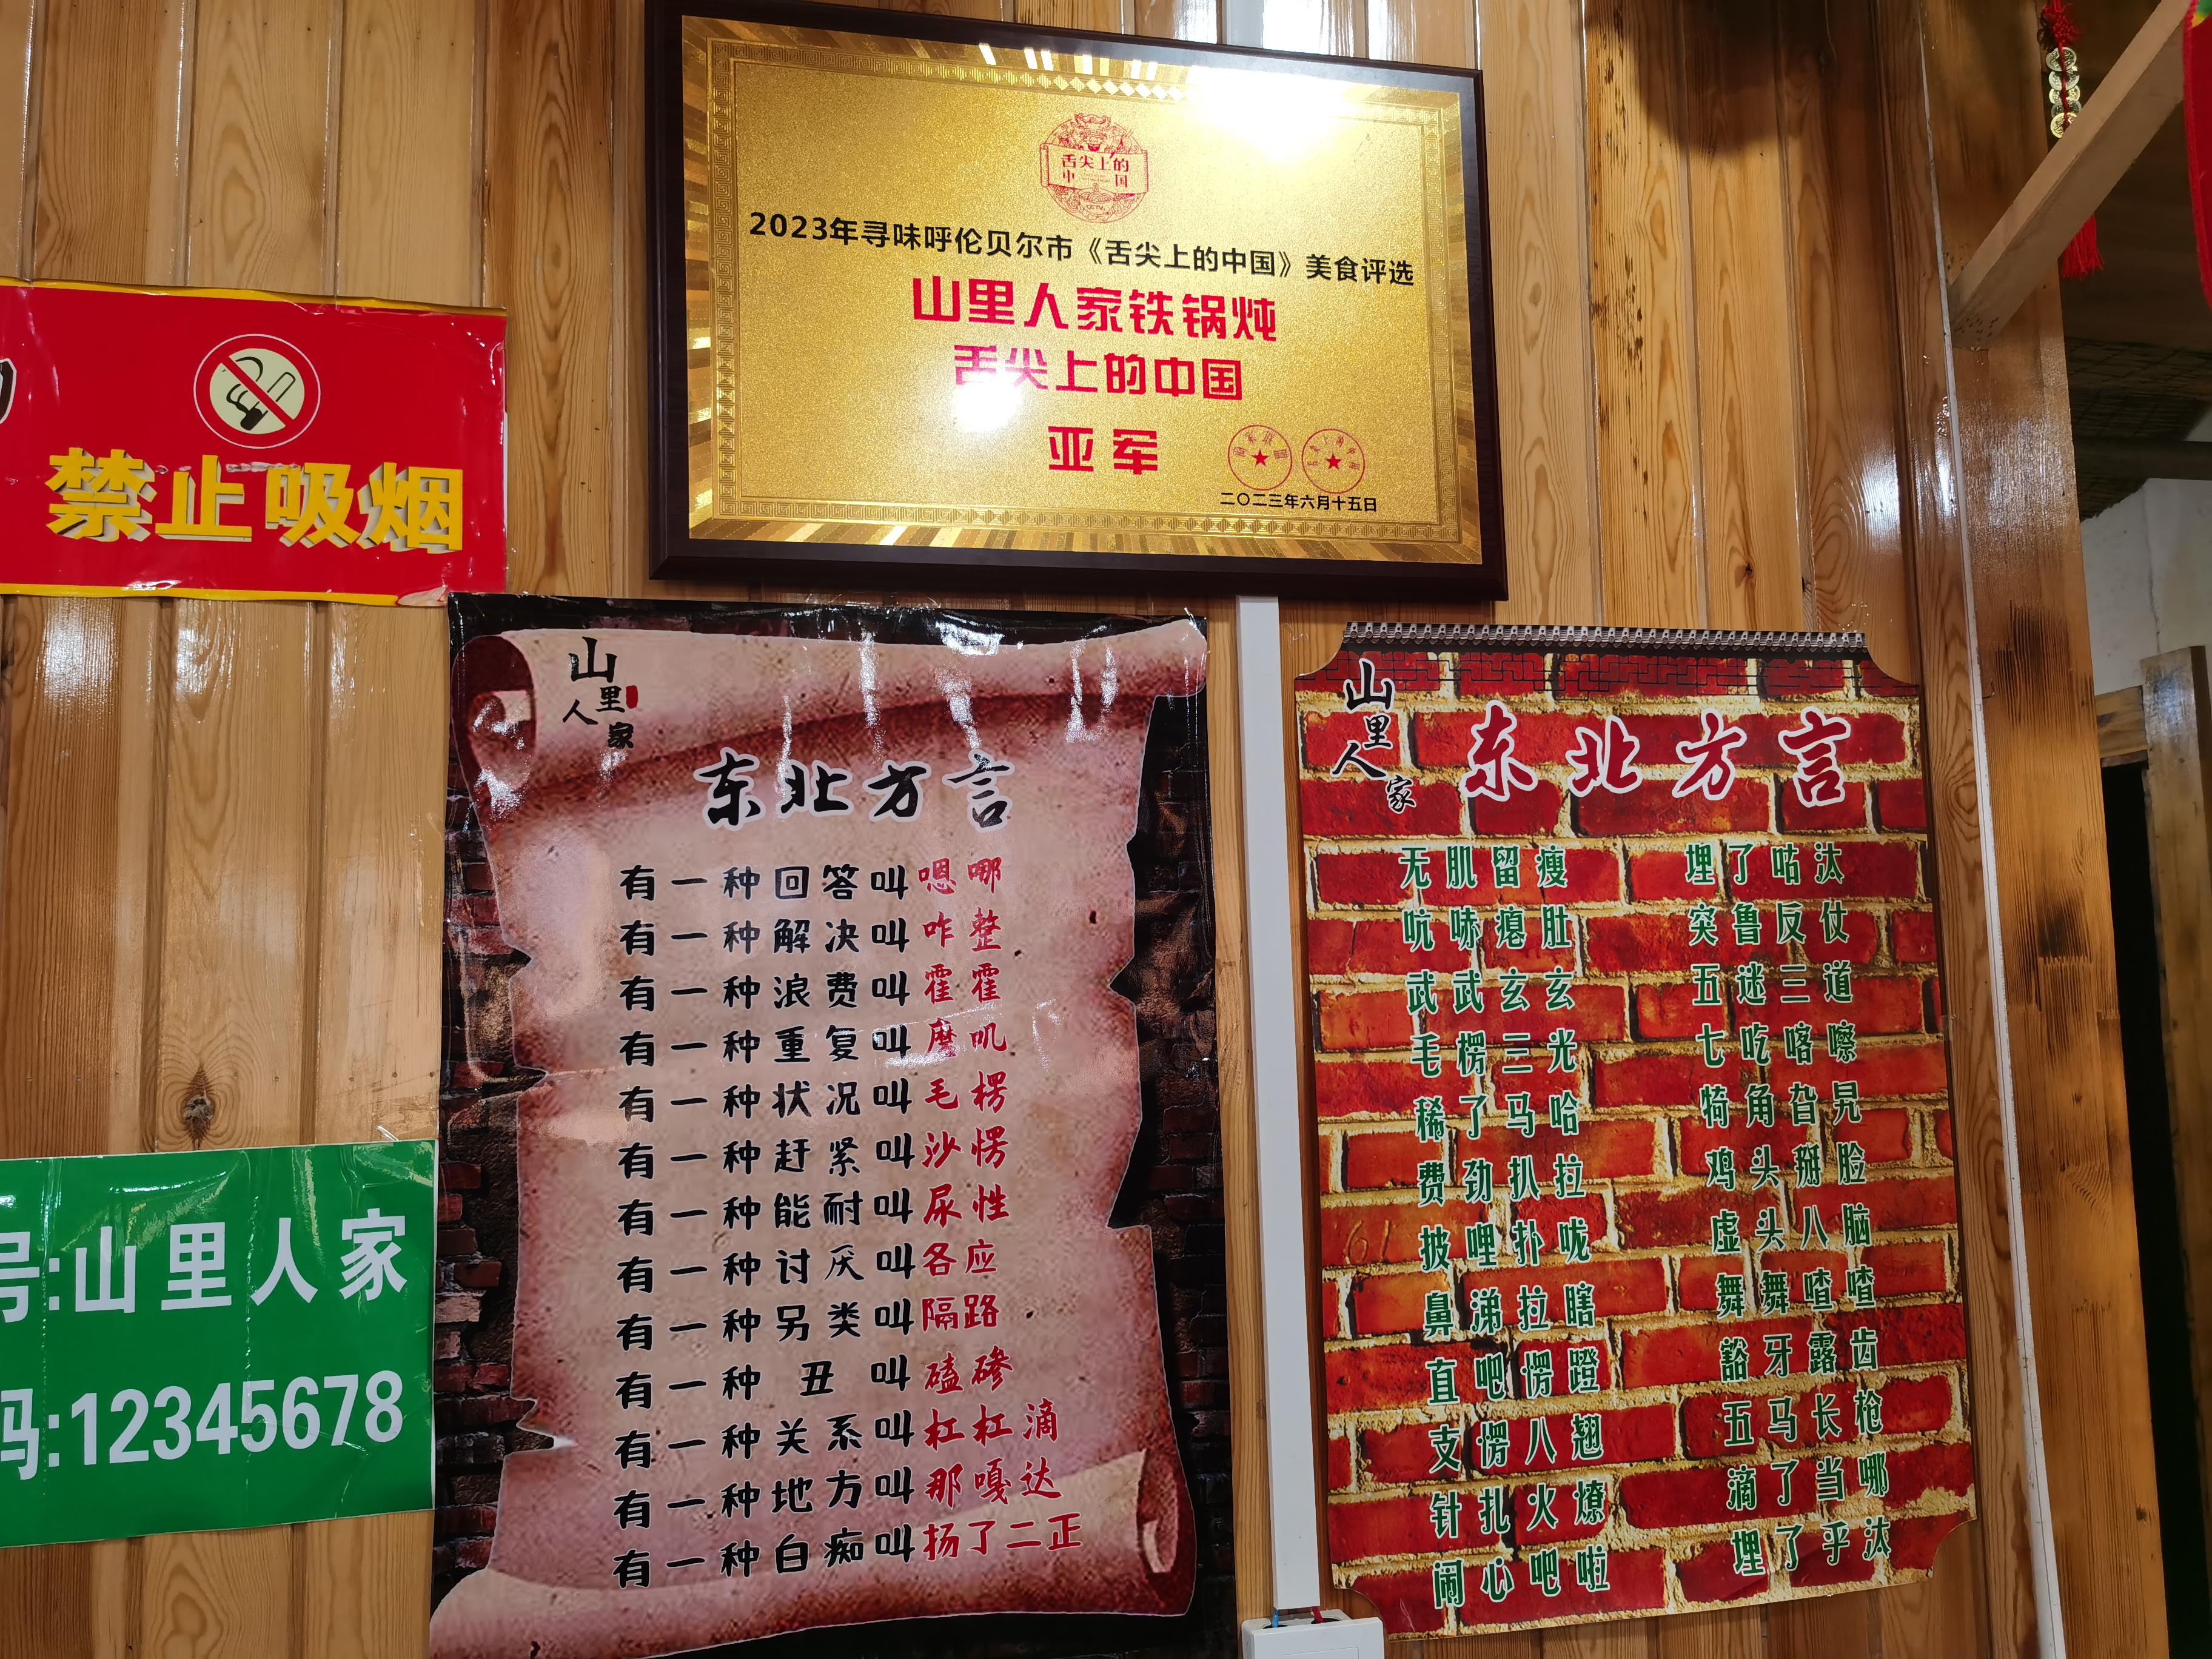 舌尖上的
中国
2023年寻味呼伦贝尔市《舌尖上的中国》美食评选
山里人家铁锅炖
舌尖上的中国
亚军
二〇二三年六月十五日
禁止吸烟
号:山里人家
码:12345678
山里人家
东北方言
有一种回答叫嗯哪
有一种解决叫咋整
有一种浪费叫霍霍
有一种重复叫磨叽
有一种状况叫毛楞
有一种赶紧叫沙愣
有一种能耐叫尿性
有一种讨厌叫各应
有一种另类叫隔路
有一种丑叫磕碜
有一种关系叫杠杠滴
有一种地方叫那嘎达
有一种白痴叫扬了二正
山里人家
东北方言
无肌留瘦 埋了咕汰
吭哧瘪肚 突鲁反仗
武武玄玄 五迷三道
毛楞三光 七吃喀嚓
稀了马哈 犄角旮旯
费劲扒拉 鸡头掰脸
披哩扑咙 虚头八脑
鼻涕拉瞎 舞舞喳喳
直吧愣蹬 豁牙露齿
支愣八翘 五马长枪
针扎火燎 滴了当哪
闹心吧啦 埋了乎汰